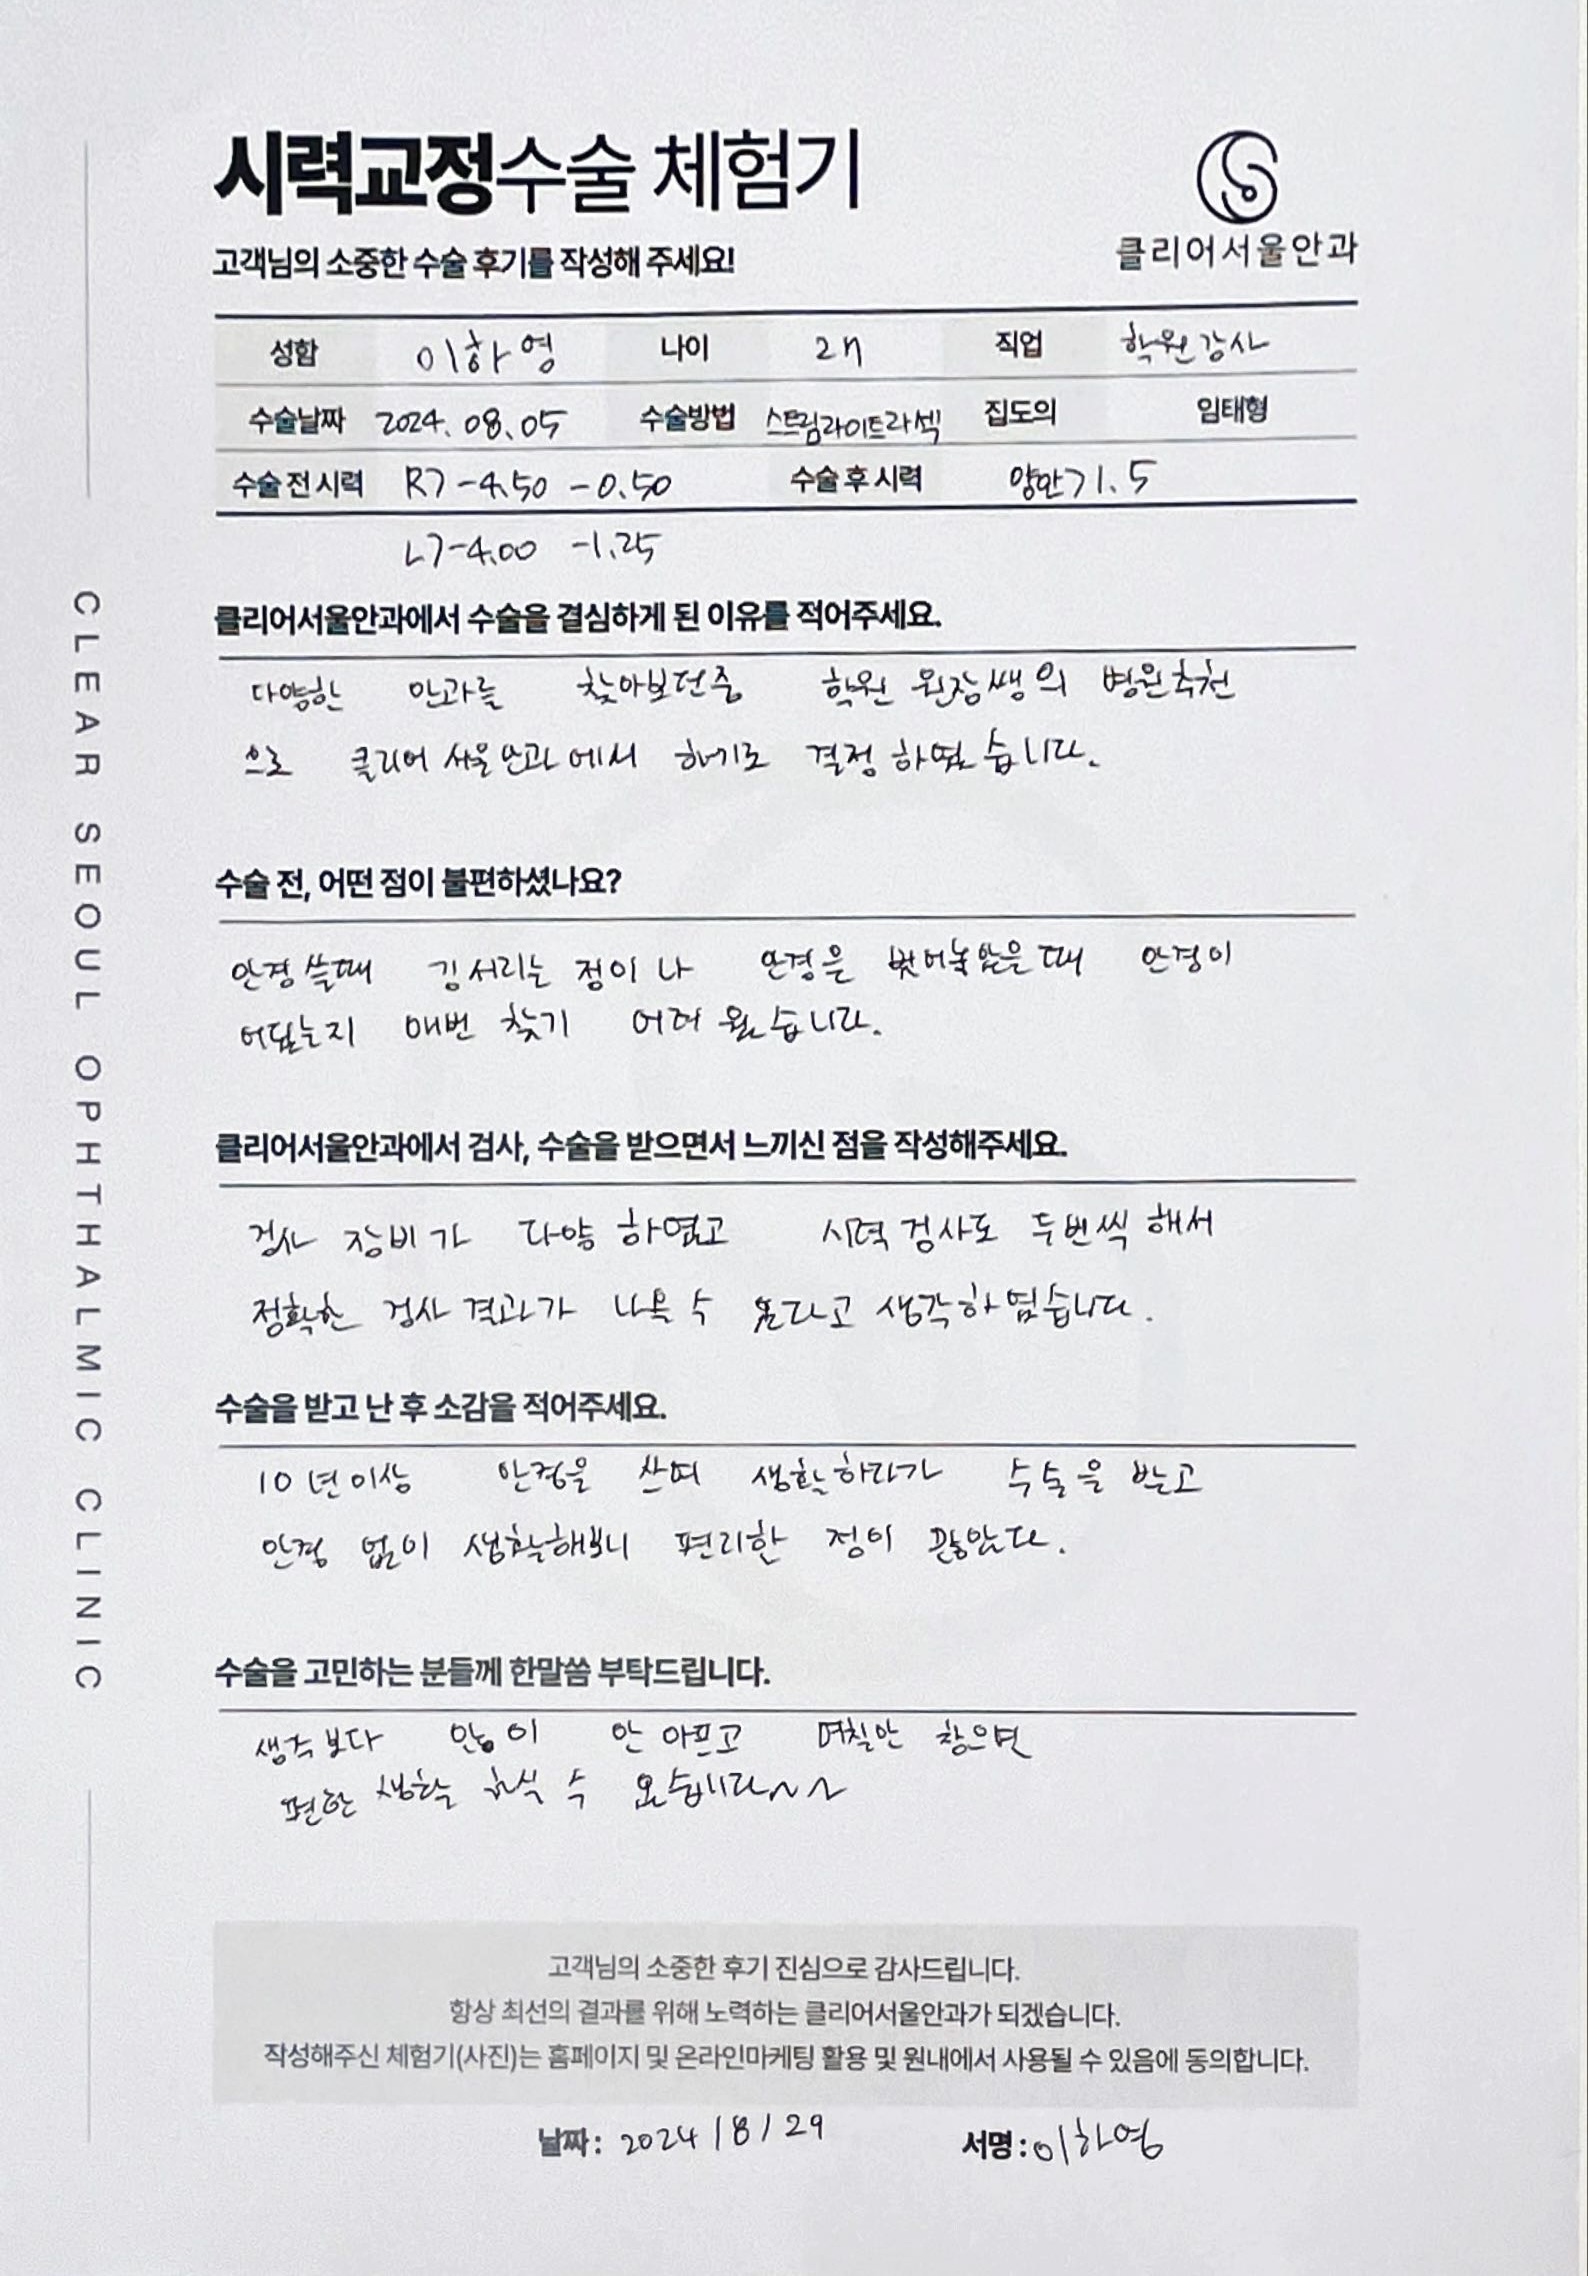 시력교정수술 체험기
클리어서울안과
고객님의 소중한 수술 후기를 작성해 주세요!
성함 이하영 나이 27 직업 학원강사
수술날짜 2024. 08. 05 수술방법 스트림라이트라섹 집도의 임태형
수술 전 시력 R) -4.50 -0.50 수술 후 시력 양안) 1.5
L) -4.00 -1.25
클리어서울안과에서 수술을 결심하게 된 이유를 적어주세요.
다양한 안과를 찾아보던중 학원 원장쌤의 병원추천
으로 클리어 서울안과에서 하기로 결정 하였습니다.
수술 전, 어떤 점이 불편하셨나요?
안경쓸때 김서리는 점이나 안경을 벗어놓았을때 안경이
어딨는지 매번 찾기 어려웠습니다.
클리어서울안과에서 검사, 수술을 받으면서 느끼신 점을 작성해주세요.
검사 장비가 다양 하였고 시력검사도 두번씩 해서
정확한 검사결과가 나올 수 있다고 생각하였습니다.
수술을 받고 난 후 소감을 적어주세요.
10년이상 안경을 쓰며 생활하다가 수술을 받고
안경 없이 생활해보니 편리한 점이 많았다.
수술을 고민하는 분들께 한말씀 부탁드립니다.
생각보다 많이 안 아프고 며칠만 참으면
편한 생활 하실 수 있습니다~~
고객님의 소중한 후기 진심으로 감사드립니다.
항상 최선의 결과를 위해 노력하는 클리어서울안과가 되겠습니다.
작성해주신 체험기(사진)는 홈페이지 및 온라인마케팅 활용 및 원내에서 사용될 수 있음에 동의합니다.
날짜 : 2024 / 8 / 29 서명 : 이하영
CLEAR SEOUL OPHTHALMIC CLINIC